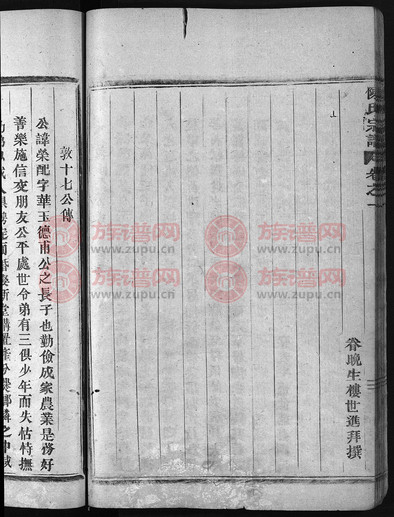 陳氏宗譜
卷之一
眷晚生樓世進拜撰
敦十七公傳
公諱榮配字華玉德甫公之長子也勤儉成家農業是務好
善樂施信交朋友公平處世令弟有三俱少年而失怙特撫
族谱网
www.zupu.cn
族谱网
www.zupu.cn
族谱网
www.zupu.cn
族谱网
www.zupu.cn